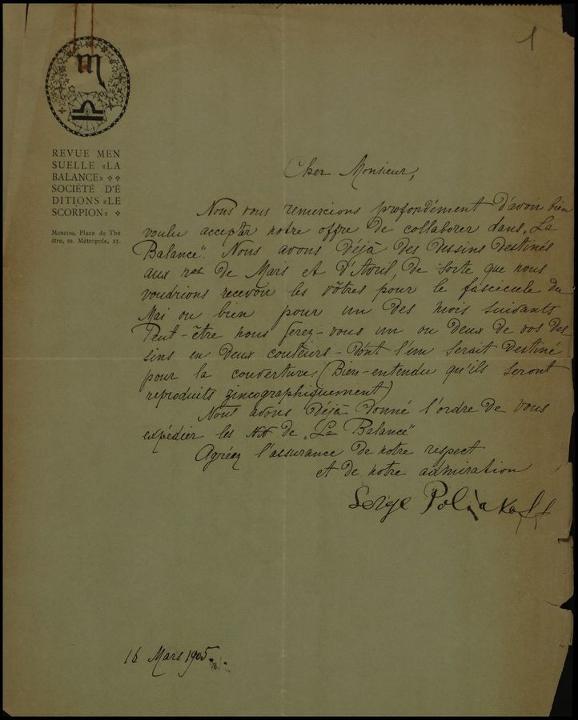 1
REVUE MEN
SUELLE «LA
BALANCE»
SOCIÉTÉ D'É
DITIONS «LE
SCORPION»
Moscou, Place de Thé
âtre, m. Métropole, 23.
Cher Monsieur,
Nous vous remercions profondément d'avoir bien
voulu accepter notre offre de collaborer dans „La
Balance“. Nous avons déjà des dessins destinés
aux de Mars et d'Avril, de sorte que nous
voudrions recevoir les vôtres pour le fascicule du
Mai ou bien pour un des mois suivants
Peut-être nous ferez-vous un ou deux de vos des-
sins en deux couleurs – dont l'un serait destiné
pour la couverture (Bien-entendu qu'ils seront
reproduits zincographiquement)
Nous avons déjà donné l'ordre de vous
expédier les NN de „La Balance“
Agréez l'assurance de notre respect
et de notre admiration
Serge Poliakoff
16 Mars 1905.